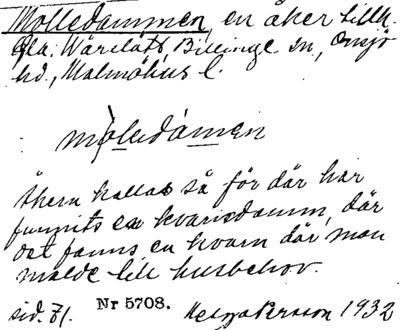 Mölledammen, en åker tillh.
Gla. Wårslätt, Billinge sn, Onsjö
hd., Malmöhus l.
mö̀lledámen
åkern kallas så för där har
funnits en kvarndamm, där
det fanns en kvarn där man
malde till husbehov.
sid. 71. Nr 5708. Helga Persson 1932